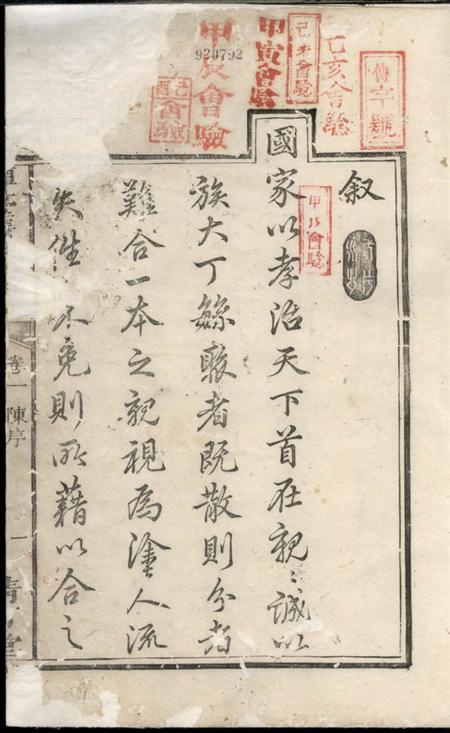 傳字號
己亥會驗
己未會驗
甲寅會驗
甲辰會驗
920792
己酉會驗
甲戌會驗
叙
國家以孝治天下首在親〻誠以
族大丁繇聚者既散則分者
難合一本之親視為塗人流
失性 不免則所藉以合之
卷一 陳序
一
堂